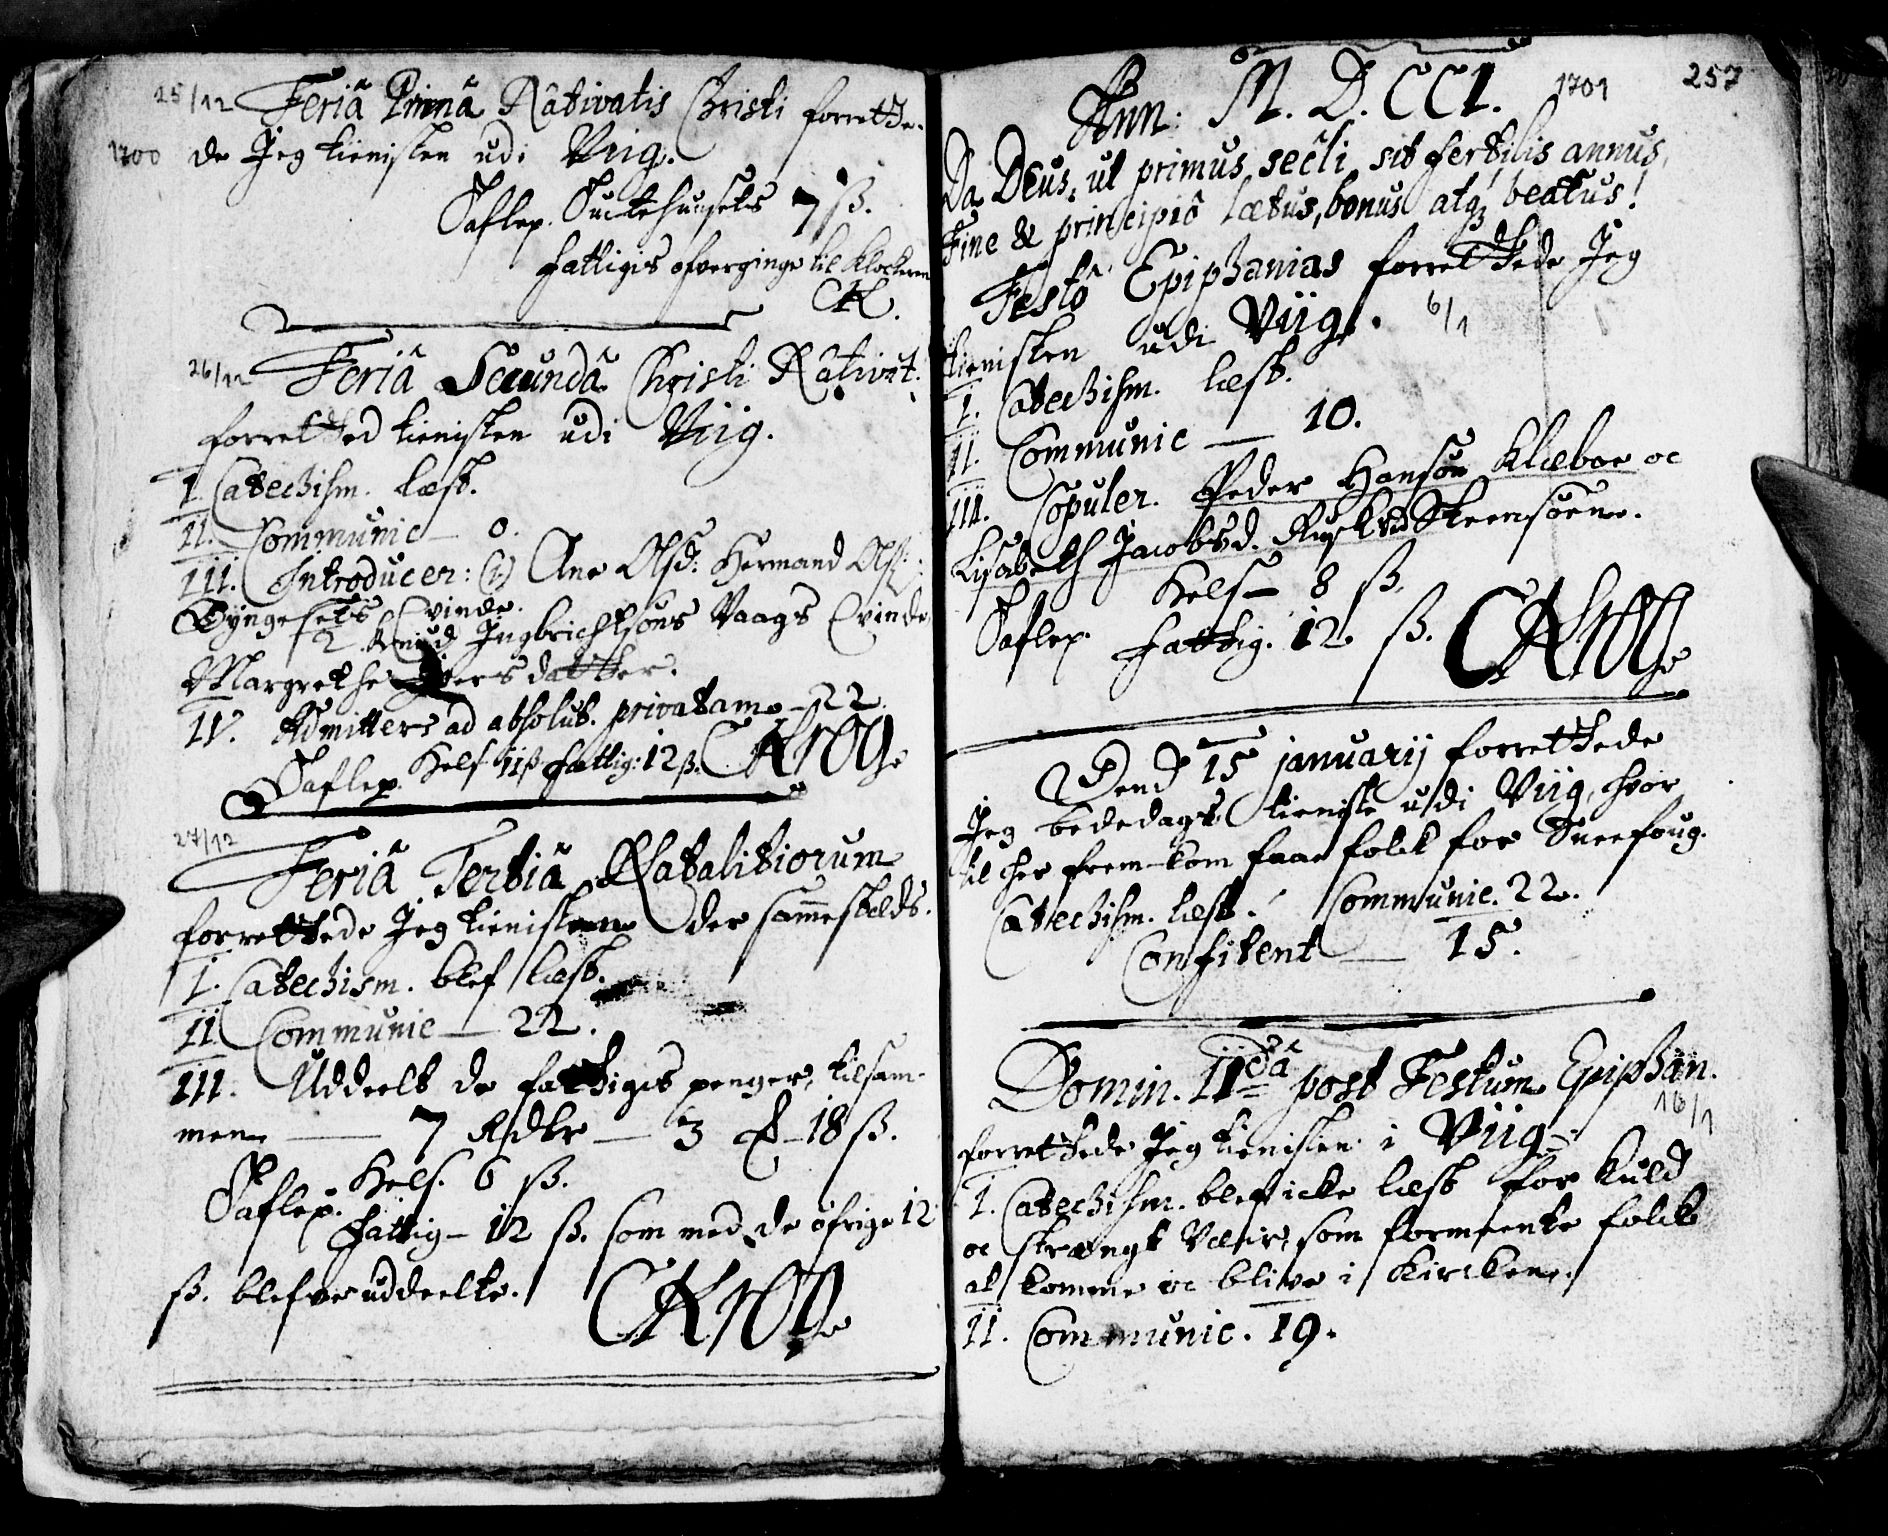 25/12 Feriâ Primâ Nativatis Christi forrette-
1700 de Jeg tienisten udi Viig.
Taflep. Siuckehuusets 7 ß.
fattigis ofverginge til klockeren
CK.
26/12 Feriâ Secundâ Christi Nativit.
forretted tienisten udi Viig.
I. Catechism. læst.
II. Communic — 0.
III. Introducer: (1) Ane Olsd: Hermand Ols:
Gyngesets Qvinde.
2 Knud Ingbrichtsøns Vaags Qvinde
Margrethe Iversdatter.
IV. Admitters ad absolut. privatam — 22.
Taflep. Kels 11 ß fattig: 12 ß. CKrog
27/12
Feriâ Tertiâ Natalitiorum
forrettede Jeg tienisten der sammestæds.
I. Catechism. blef læst.
II Communic — 22.
III. Uddeelt de fattigis penger, tilsam-
men — 7 Rdlr — 3 — 18 ß.
Taflep. Kels. 6 ß.
Fattig — 12 ß. som med de øfrige 12
ß. blefve uddeelte. CKrog
257
Ann: M. D. CCI. 1701
Da Deus, ut primus secli, sit fertilis annus,
Fine & principiô lætus, bonus atq; beatus!
Festô Epiphanias forrettede Jeg
tienisten udi Viig. 6/1
I. Catechism. læst.
II. Communic — 10.
III. Copuler. Peder Hansøn Klæboe oc
Lisabeth Jacobsd. Steensøen.
Kels — 8 ß.
Taflep. fattig. 12 ß. CKrog
Dend 15 januarij forrettede
Jeg bededags tieniste udi Viig, hvor
til her frem-kom faae folck for Sneefoug.
Catechism. læst. Communic. 22.
Confitent — 15.
Domin. IIdâ post Festum Epiphan.
16/1
forrettede Jeg tienisten i Viig.
I. Catechism. blef icke læst for kuld
oc strængt Væir, som formeente folck
at komme oc blive i Kircken.
II. Communic. 19.